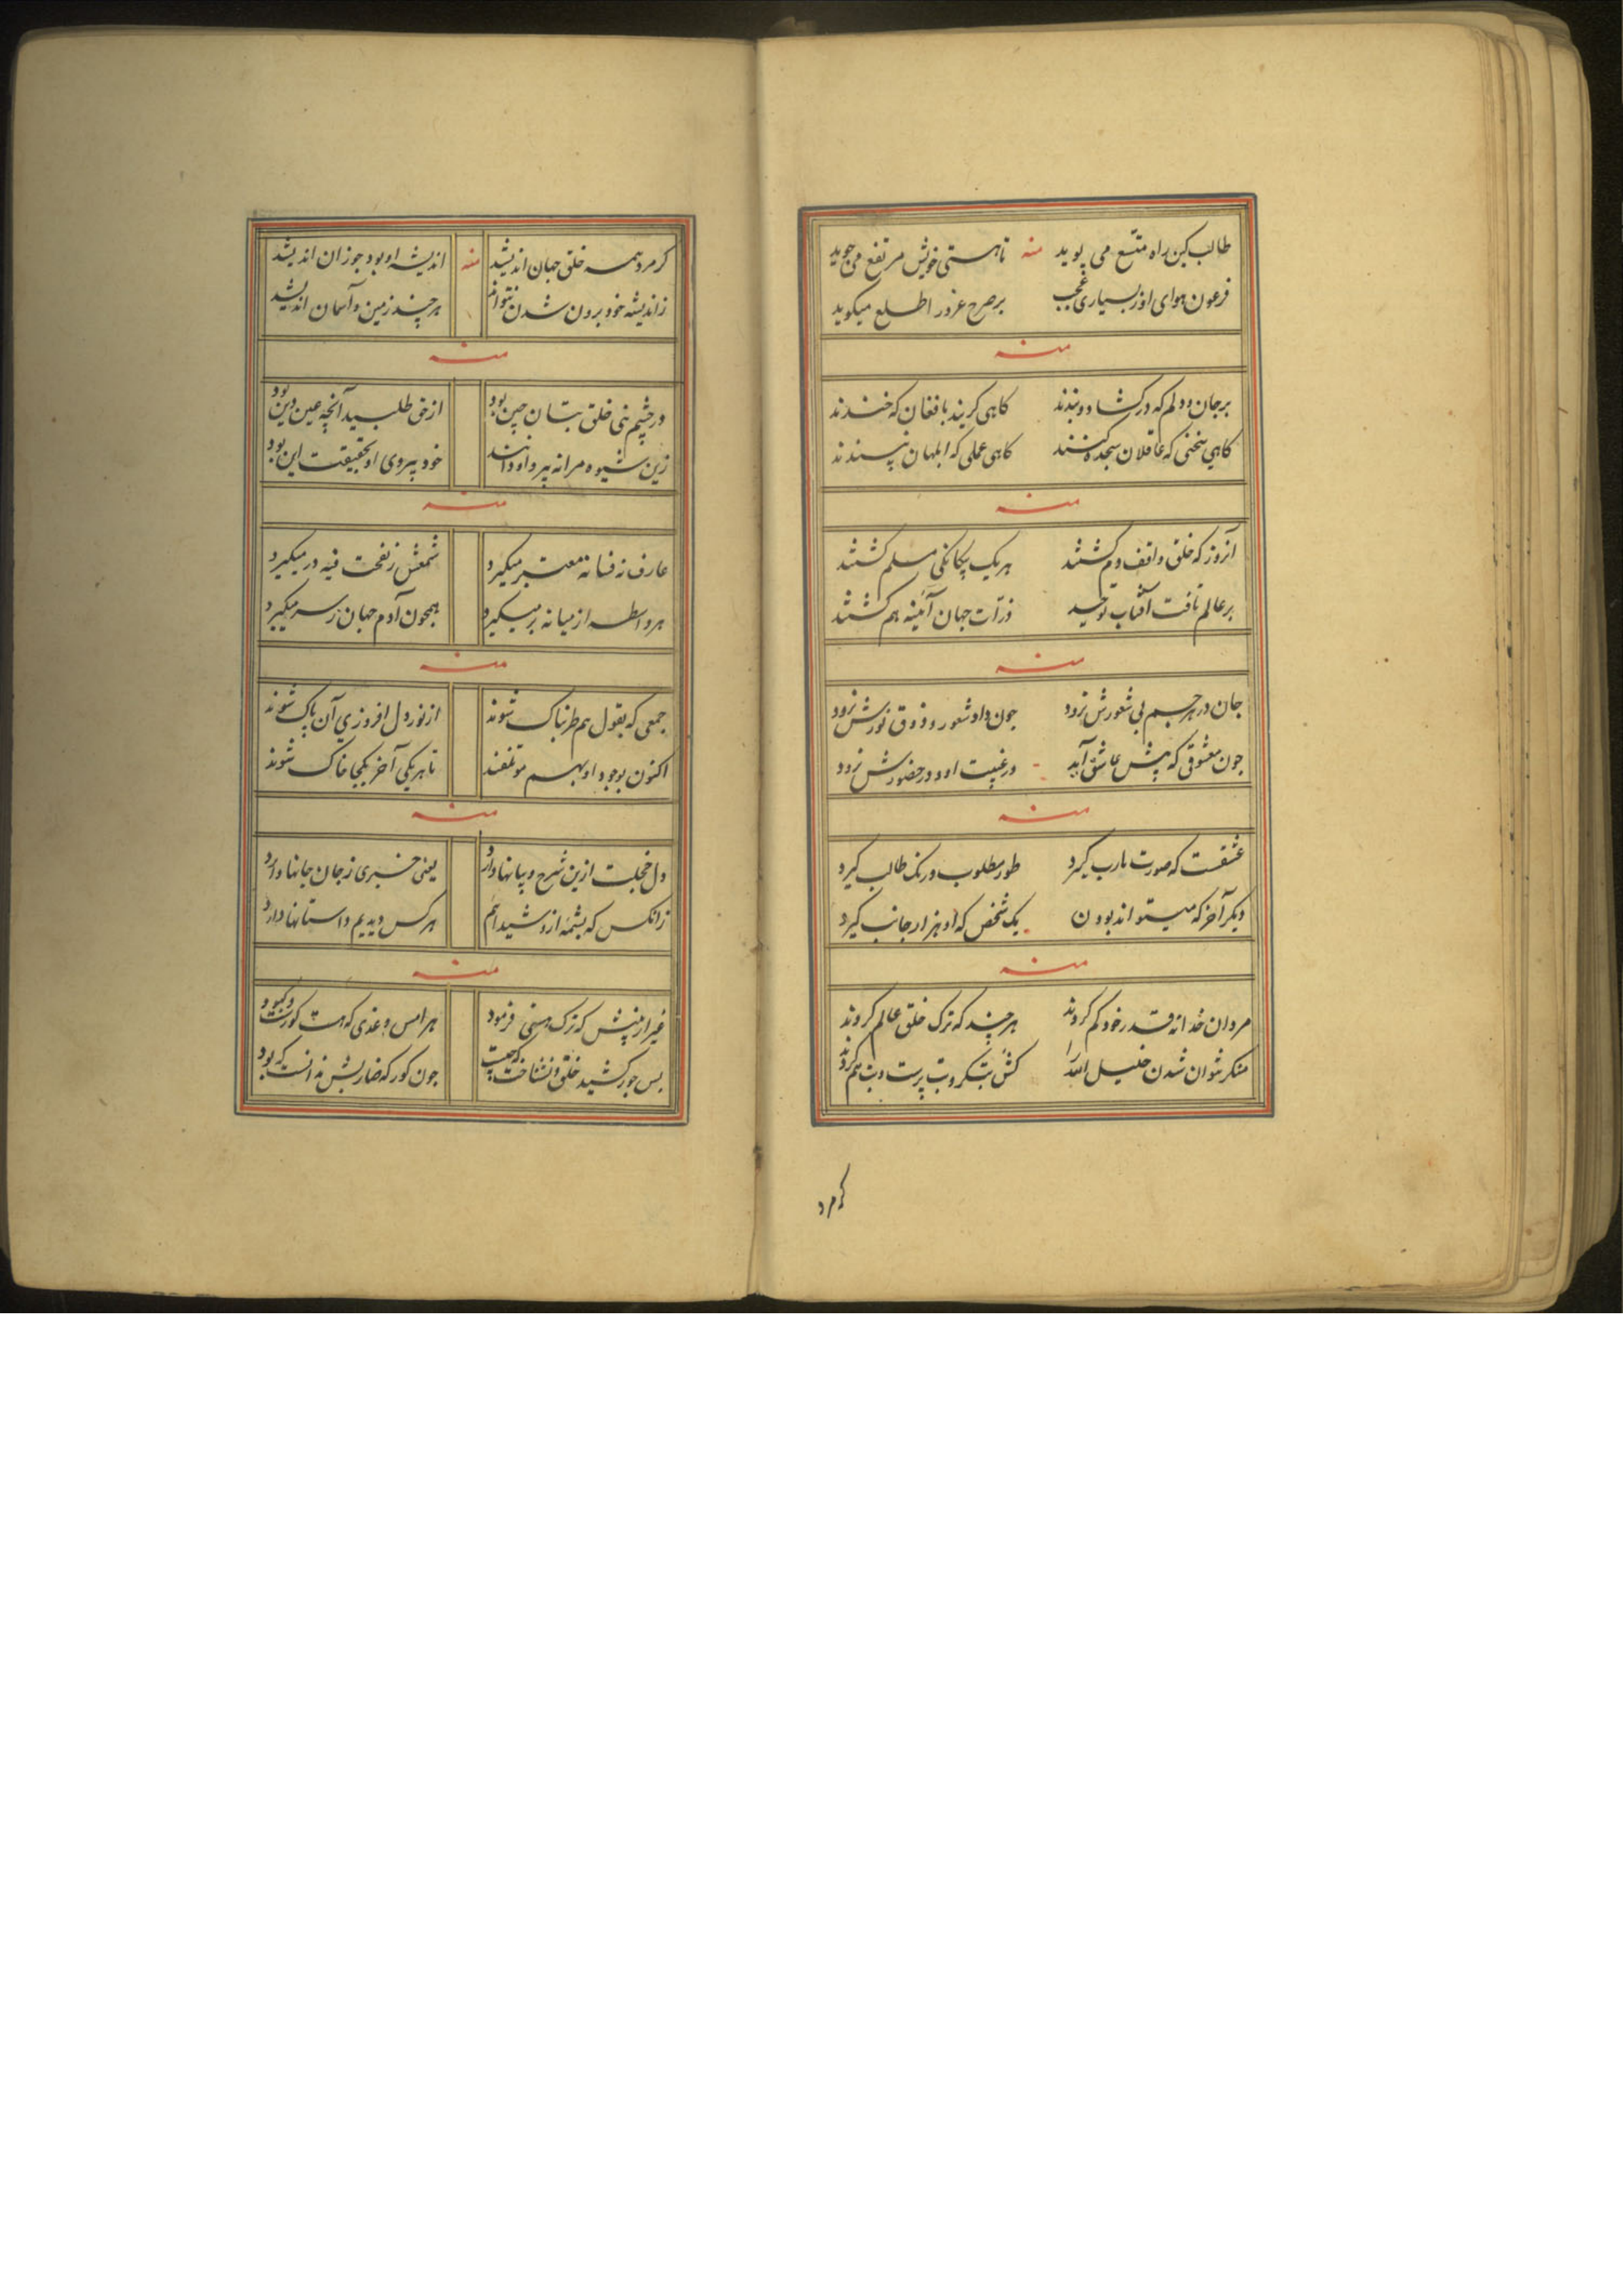 طالب کین راه متبع می پوید منه تا هستی خویش مرتفع می جوید
فرعون هوای او ز بسیاری عجب بر صرح غرور اطلع میکوید
منه
بر جان و دلم که در کشاد و بندند کاهی کریند با فغان که خندند
کاهی سخنی که عاقلان سجده کنند کاهی عملی که ابلهان پسندند
منه
آنروز که خلق واقف دم کشتند هر یک بیکانکی مسلم کشتند
بر عالم تافت آفتاب توحید ذرات جهان آئینه هم کشتند
منه
جان در هر جسم بی شعورش نرود چون داد شعور و ذوق نورش نرود
چون معشوقی که پیش عاشق آید در غیبت او و در حضورش نرود
منه
عشقست که صورت مارب کیرد طور مطلوب و رنک طالب کیرد
دیکر آخر که میتواند بودن یک شخص که او هزار جانب کیرد
منه
مردان خدا نه قدر خود کم کردند هر چند که ترک خلق عالم کردند
منکر نتوان شدن خلیل الله را کش بتکر و بت پرست و بت هم کردند
کر مرد
کر مرد همه خلق جهان اندیشد منه اندیشه او بود جوز ان اندیشد
ز اندیشه خود برون شدن نتواند هر چند زمین و آسمان اندیشد
منه
در چشم نبی خلق بتان چین بود از حق طلبید آنچه عین دین بود
زین شیوه مرا نه پیرو او دانند خود پیروی او بحقیقت این بود
منه
عارف نه فسانه معتبر میکیرد شمعش ز نفخت فیه در میکیرد
هر واسطه از میانه بر میکیرد همچون آدم جهان ز سر میکیرد
منه
جمعی که بقول هم طربناک شوند از نور دل افروزی آن پاک شوند
اکنون بوجود او بهم موتلفند تا هر یکی آخر بکجا خاک شوند
منه
دل خجلت ازین شرح و بیانها دارد یعنی خبری ز جان جانها دارد
زانکس که بشمه ازو شیدائیم هر کس دیدیم داستانها دارد
منه
غیر از بینش که ترک هستی فرمود هر امس و غدی که هست کورست و کبود
بس جور کشید خلق و نشناخت که چیست چون کور که ضاربش ندانست که بود